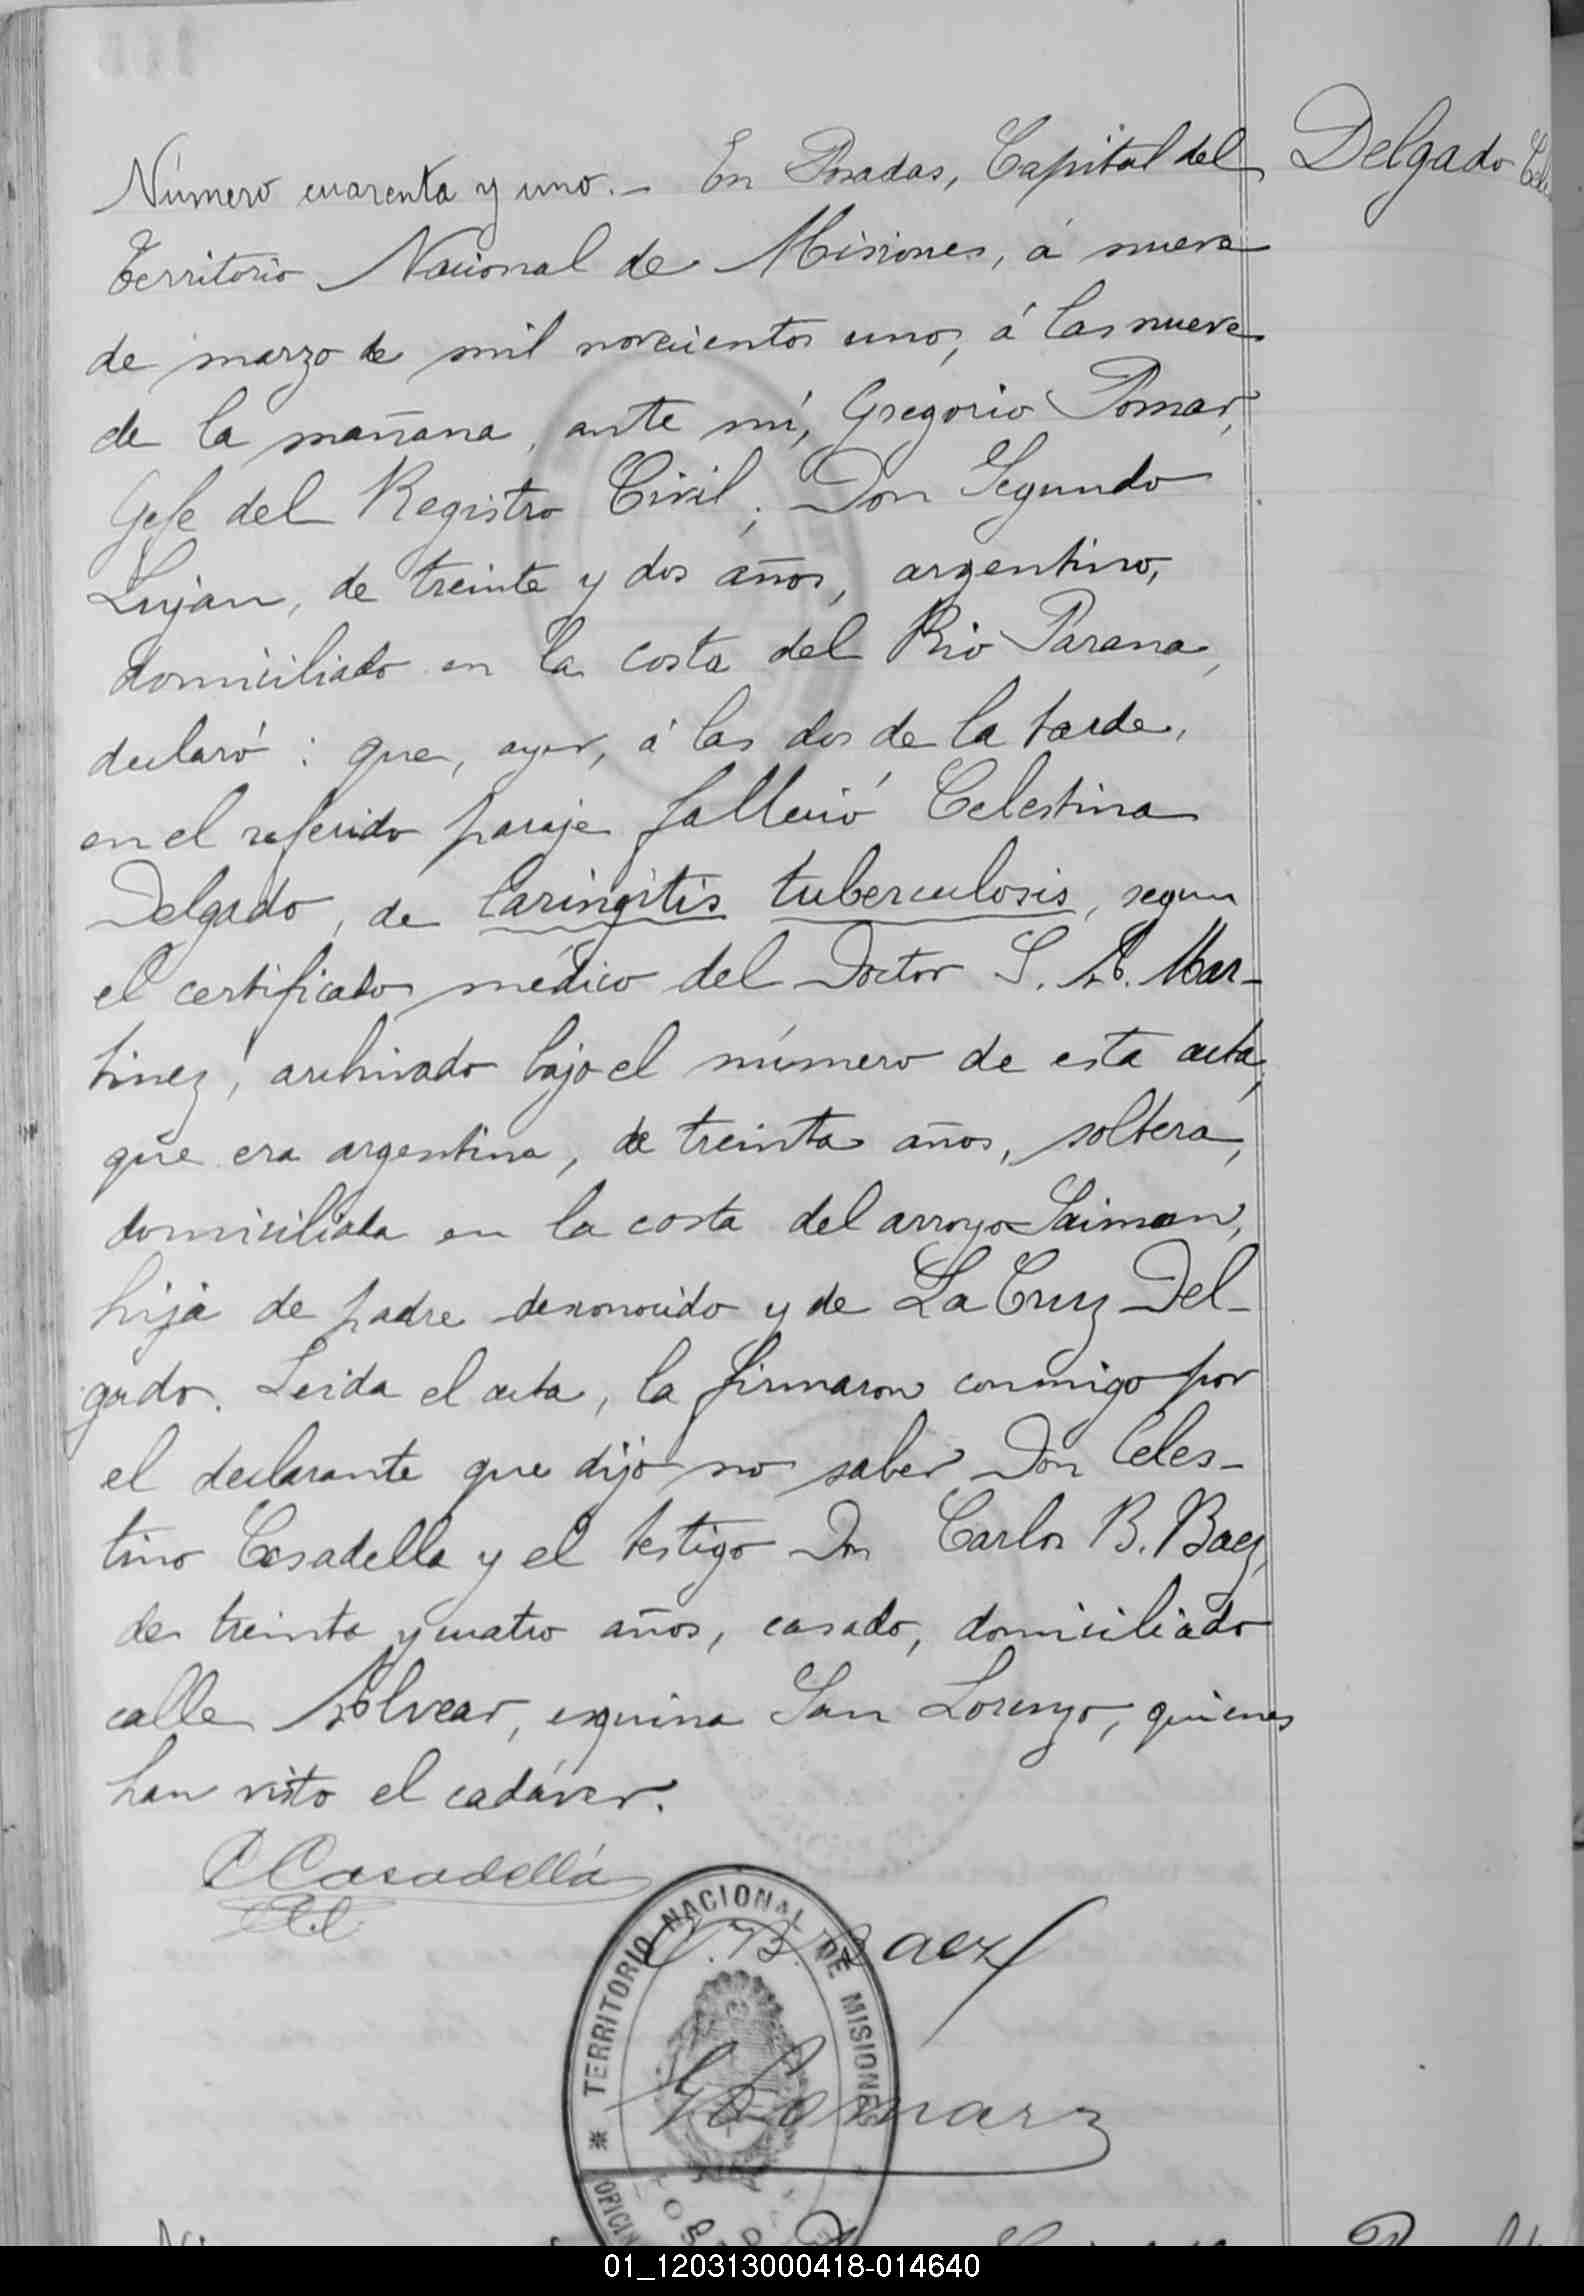 Delgado Cele
Número cuarenta y uno.- En Posadas, Capital del
Territorio Nacional de Misiones, á nueve
de marzo de mil novecientos uno, á las nueve
de la mañana, ante mí, Gregorio Pomar,
Gefe del Registro Civil; Don Segundo
Lujan, de treinta y dos años, argentino,
domiciliado en la costa del Rio Parana,
declaró: que, ayer, á las dos de la tarde,
en el referido paraje falleció Celestina
Delgado, de laringitis tuberculosis, segun
el certificado médico del Doctor S. A. Mar-
tinez, archivado bajo el número de esta acta,
que era argentina, de treinta años, soltera,
domiciliada en la costa del arroyo Saiman,
hija de padre desconocido y de La Cruz Del-
gado. Leida el acta, la firmaron conmigo por
el declarante que dijo no saber Don Celes-
tino Casadella y el testigo Don Carlos B. Baez,
de treinta y cuatro años, casado, domiciliado
calle Alvear, esquina San Lorenzo, quienes
han visto el cadáver.
C Casadellá
C. B. Baez
TERRITORIO NACIONAL DE MISIONES
G Pomar
OFICIN
01_120313000418-014640